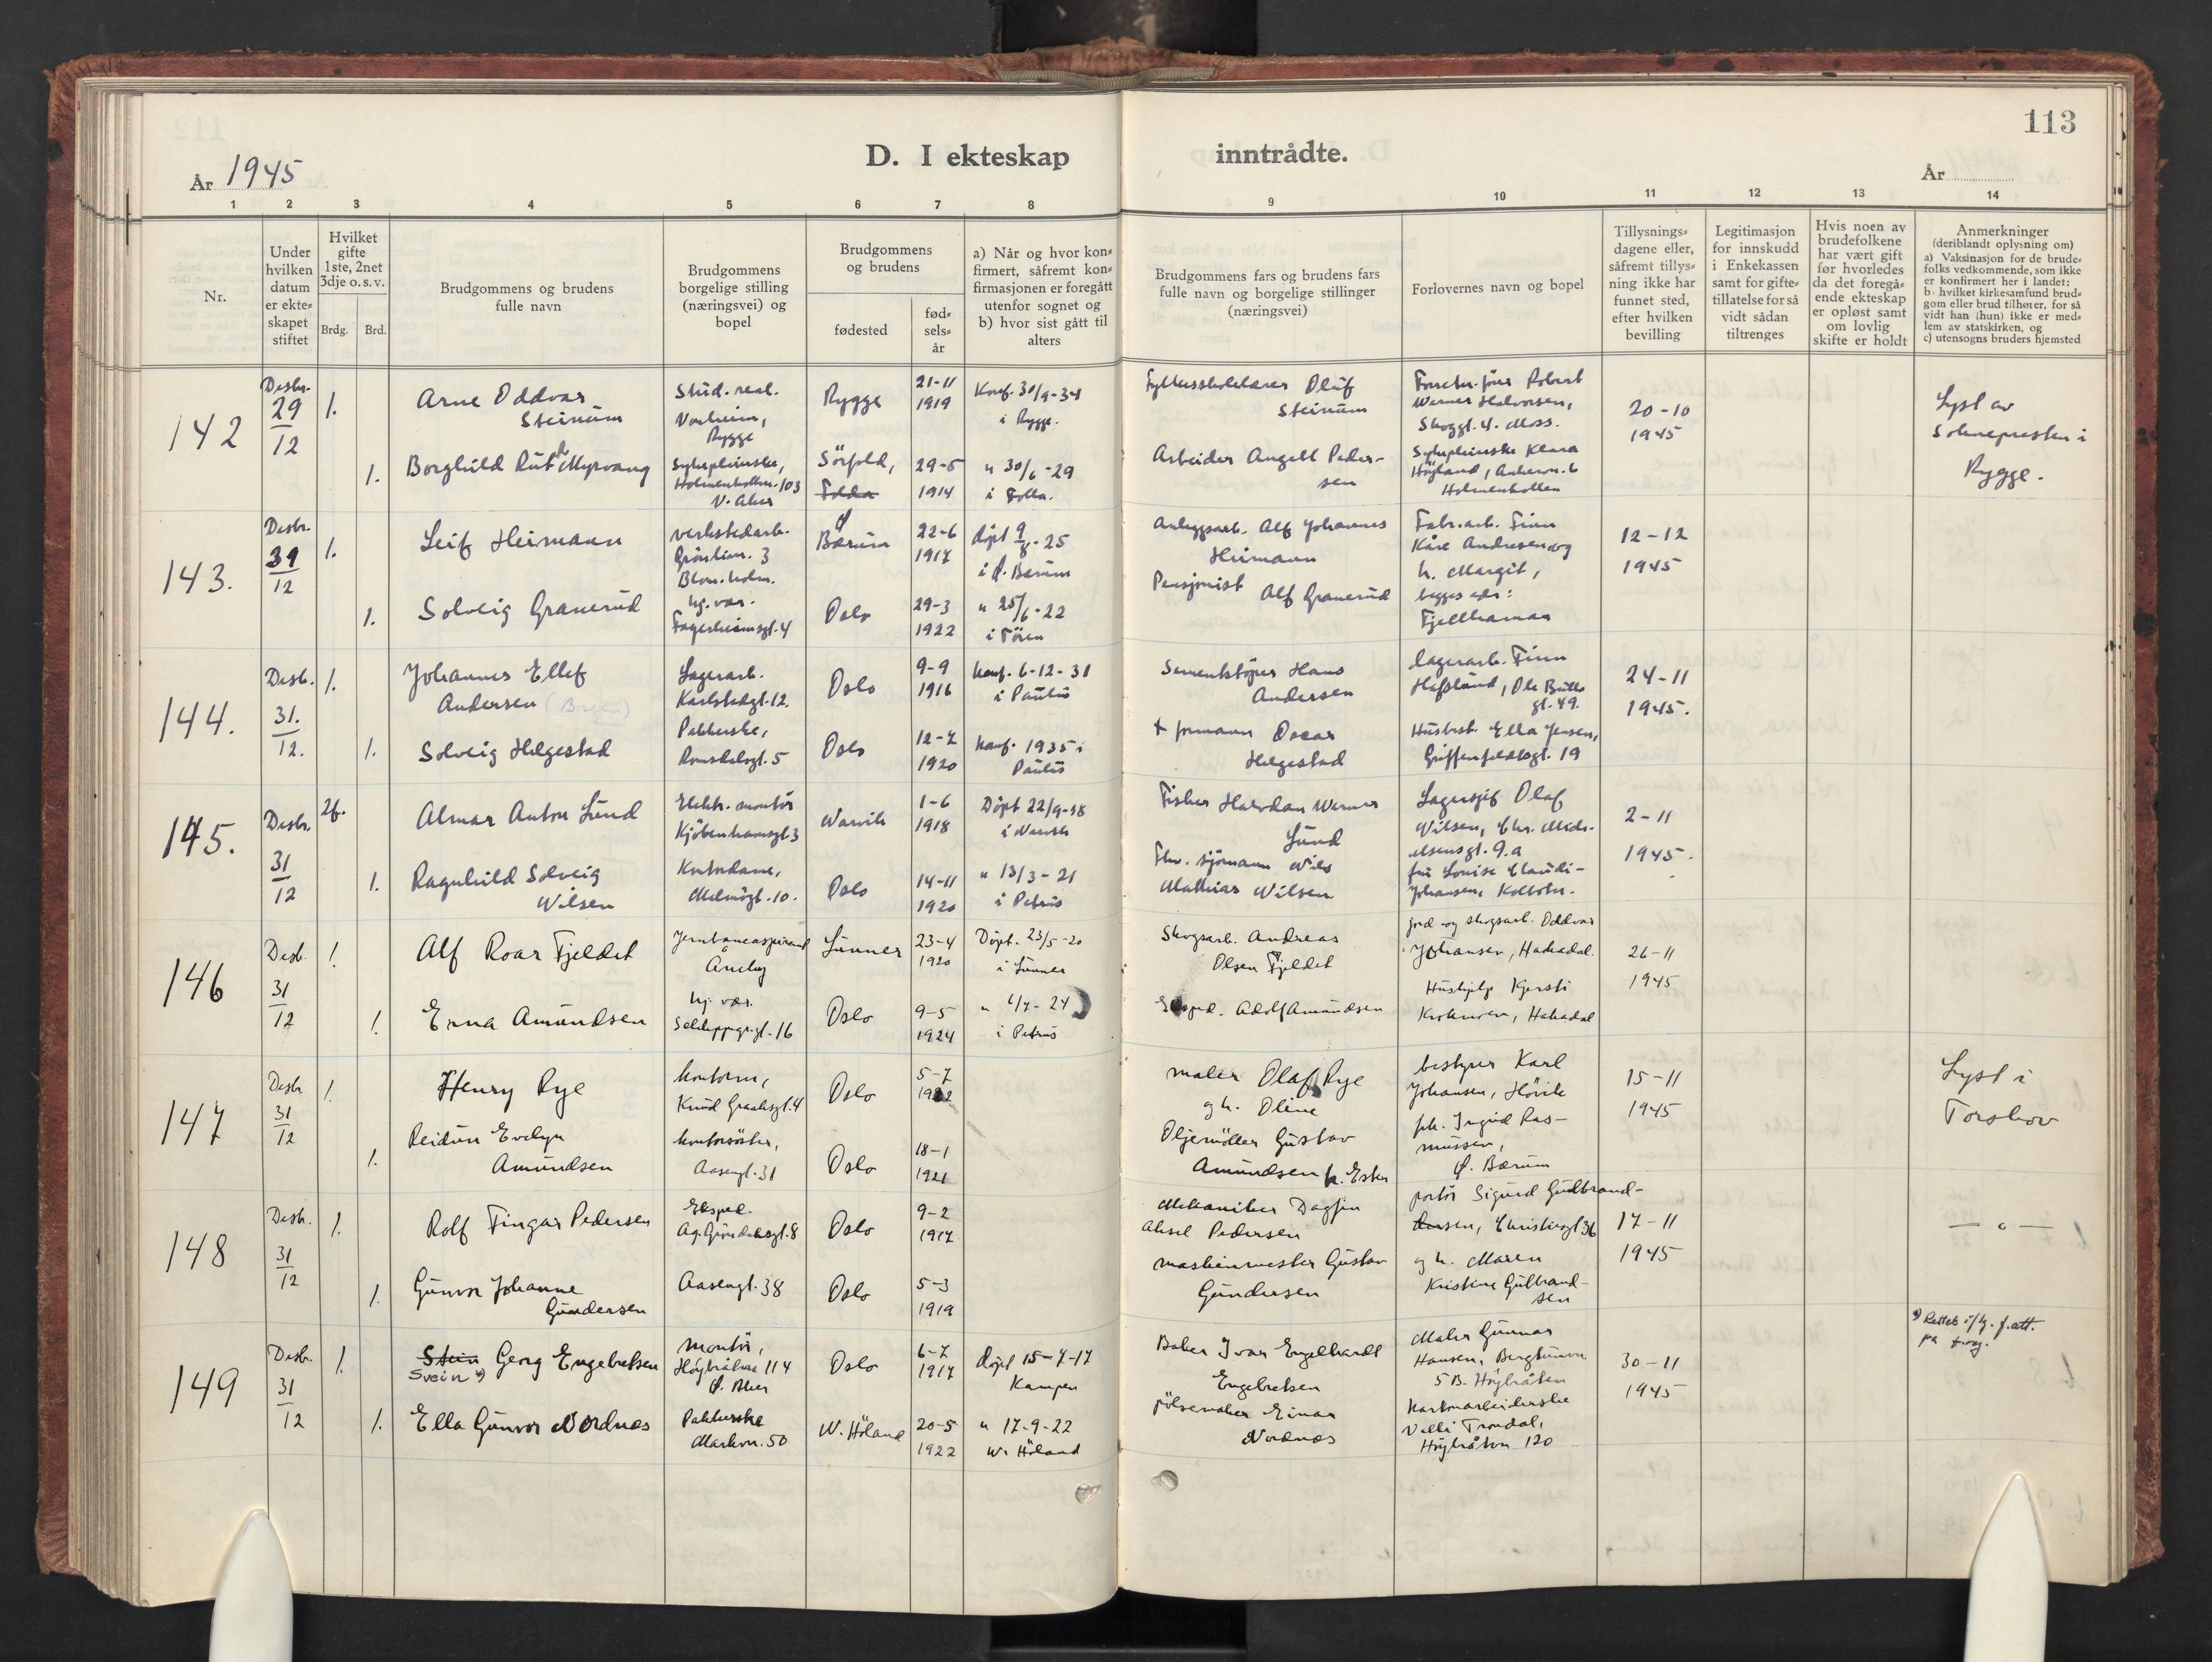 113
D. I ekteskap inntrådte.
År 1945
År
1 2 3 4 5 6 7 8 9 10 11 12 13 14
Nr.
Under
hvilken
datum
er ekte-
skapet
stiftet
Hvilket
gifte
1ste, 2net
3dje o. s. v.
Brdg. Brd.
Brudgommens og brudens
fulle navn
Brudgommens
borgelige stilling
(næringsvei) og
bopel
Brudgommens
og brudens
fødested
fød-
sels-
år
a) Når og hvor kon-
firmert, såfremt kon-
firmasjonen er foregått
utenfor sognet og
b) hvor sist gått til
alters
Brudgommens fars og brudens fars
fulle navn og borgelige stillinger
(næringsvei)
Forlovernes navn og bopel
Tillysnings-
dagene eller,
såfremt tillys-
ning ikke har
funnet sted,
efter hvilken
bevilling
Legitimasjon
for innskudd
i Enkekassen
samt for gifte-
tillatelse for så
vidt sådan
tiltrenges
Hvis noen av
brudefolkene
har vært gift
før hvorledes
da det foregå-
ende ekteskap
er opløst samt
om lovlig
skifte er holdt
Anmerkninger
(deriblandt oplysning om)
a) Vaksinasjon for de brude-
folks vedkommende, som ikke
er konfirmert her i landet:
b) hvilket kirkesamfund brud-
gom eller brud tilhører, for så
vidt han (hun) ikke er med-
lem av statskirken, og
c) utensogns bruders hjemsted
142
Desbr.
29
12
1.
Arne Oddvar
Steinum
Stud. real.
Vonheim,
Rygge
Rygge
21-11
1919
Konf. 30/9-34
i Rygge.
Fylkesskolelærer Oluf
Steinum
Robert
Werner Halvorsen,
Skoggt. 4. Moss.
20-10
1945
Lyst av
Soknepresten i
Rygge.
1.
Borghild Ruth Myrvang
Sykepleierske,
Holmenkollvn. 103
V. Aker
Sörfold,
Folda
29-5
1914
" 30/6-29
i Folla.
Arbeider Angell Peder-
sen
Sykepleierske Klara
Höyland, Ankervn. 6
Holmenkollen
143.
Desbr.
31
12
1.
Leif Heimann
verkstedarb.
Grönlien. 3
Blom. holm.
Ø
Bærum
22-6
1917
döpt 9/8-25
i Ø. Bærum
Anleggsarb. Alf Johannes
Heimann
Fabr. arb. Finn
Kåre Andresen og
h. Margit,
begges adr:
Fjellhamar
12-12
1945
1.
Solveig Granerud
hj. vær.
Fagerheimsgt. 4
Oslo
29-3
1922
" 25/6-22
i Töien
Pensjonist Alf Granerud
144.
Desb.
31.
12.
1.
Johannes Ellef
Andersen
Lagerarb.
Karlstadgt. 12.
Oslo
9-9
1916
Konf. 6-12-31
i Paulus
Sementstöper Hans
Andersen
lagerarb. Finn
Hafslund, Ole Bulls
gt. 49.
24-11
1945.
1.
Solveig Helgestad
Pakkerske,
Romsdalsgt. 5
Oslo
12-7
1920
Konf. 1935 i
Paulus
+ formann Oscar
Helgestad
Husbest. Ella Jensen,
Griffenfeldtsgt. 19
145.
Desbr.
31
12
2f.
Almar Anton Lund
Elektr. montör
Kjöbenhavnsgt 3
Narvik
1-6
1918
Döpt 22/9-18
i Narvik
Fisker Halvdan Werner
Lund
Lagersjef Olaf
Nilsen, Chr. Mich-
elsensgt. 9.a
2-11
1945.
1.
Ragnhild Solveig
Nilsen
Kontordame,
Malmögt. 10.
Oslo
14-11
1920
" 13/3-21
i Petrus
Fhv. sjömann Nils
Mathias Nilsen
fru Louise Claudi-
Johansen, Kolbotn.
146
Desb.
31
12
1.
Alf Roar Fjeldet
Jernbaneaspirant
Åneby
Lunner
23-4
1920
Döpt. 23/5-20
i Lunner
Skogsarb. Andreas
Olsen Fjeldet
jord- og skogsarb. Oddvar
Johansen, Hakadal.
26-11
1945
1.
Erna Amundsen
hj. vær.
Schleppegr. gt. 16
Oslo
9-5
1924
" 6/7-24
i Petrus
Eksped. Adolf Amundsen
Hushjelp Kjersti
Hakadal
147
Desbr
31
12
1.
Henry Rye
kontorm,
Knud Graahsgt. 4
Oslo
5-7
1922
maler Olaf Rye
og h. Oline
bestyrer Karl
Johansen, Hövik
15-11
1945
Lyst i
Torshov
1.
Reidun Evelyn
Amundsen
kontorsöster,
Aasengt. 31
Oslo
18-1
1921
Oljemöller Gustav
Amundsen h. Ester
frk. Ingrid Ras-
mussen,
Ø. Bærum
148
Desb.
31
12
1.
Rolf Fingar Pedersen
Eksped.
Ag. Gründahlsgt. 8
Oslo
9-2
1917
Mekaniker Dagfin
Aksel Pedersen
portör Sigurd Gudbrand-
sen, Christiesgt. 36
17-11
1945
— " —
1.
Gunvor Johanne
Gundersen
Aasengt. 38
Oslo
5-3
1919
maskinmester Gustav
Gundersen
og h. Maren
Kristine Gulbrand-
sen
149
Desbr.
31
12
1.
Stein Georg Engebretsen
Svein *)
montör,
Höybråtenv. 114
Ø. Aker
Oslo
6-7
1917
döpt 15-7-17
Kampen
Baker Ivar Engelhardt
Engebretsen
Maler Gunnar
Hansen, Bergtunvn.
5 B. Höybråten
30-11
1945
*) Rettet i/h. f. att.
på forog.
1.
Ella Gunvor Nordnæs
Pakkerske
Markvn. 50
N. Höland
20-5
1922
" 17-9-22
N. Höland
pölsemaker Einar
Nordnæs
Kartonarbeiderske
Velli Trondal,
Höybråten 120